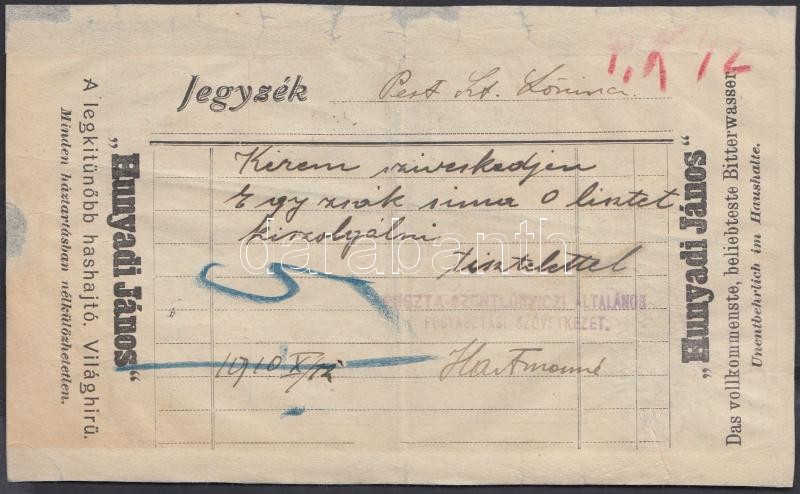 Jegyzék
Pest Szt. Lőrincz
P. K.
Kérem sziveskedjen
Egy zsák sima 0 lisztet
kiszolgálni
tisztelettel
PUSZTA-SZENTLŐRINCZI ÁLTALÁNOS
FOGYASZTÁSI SZÖVETKEZET.
1910 X/12
Hartmanné
„Hunyadi János“
A legkitünőbb hashajtó. Világhirü.
Minden háztartásban nélkülözhetetlen.
„Hunyadi János“
Das vollkommenste, beliebteste Bitterwasser
Unentbehrlich im Haushalte.
darabanth.com